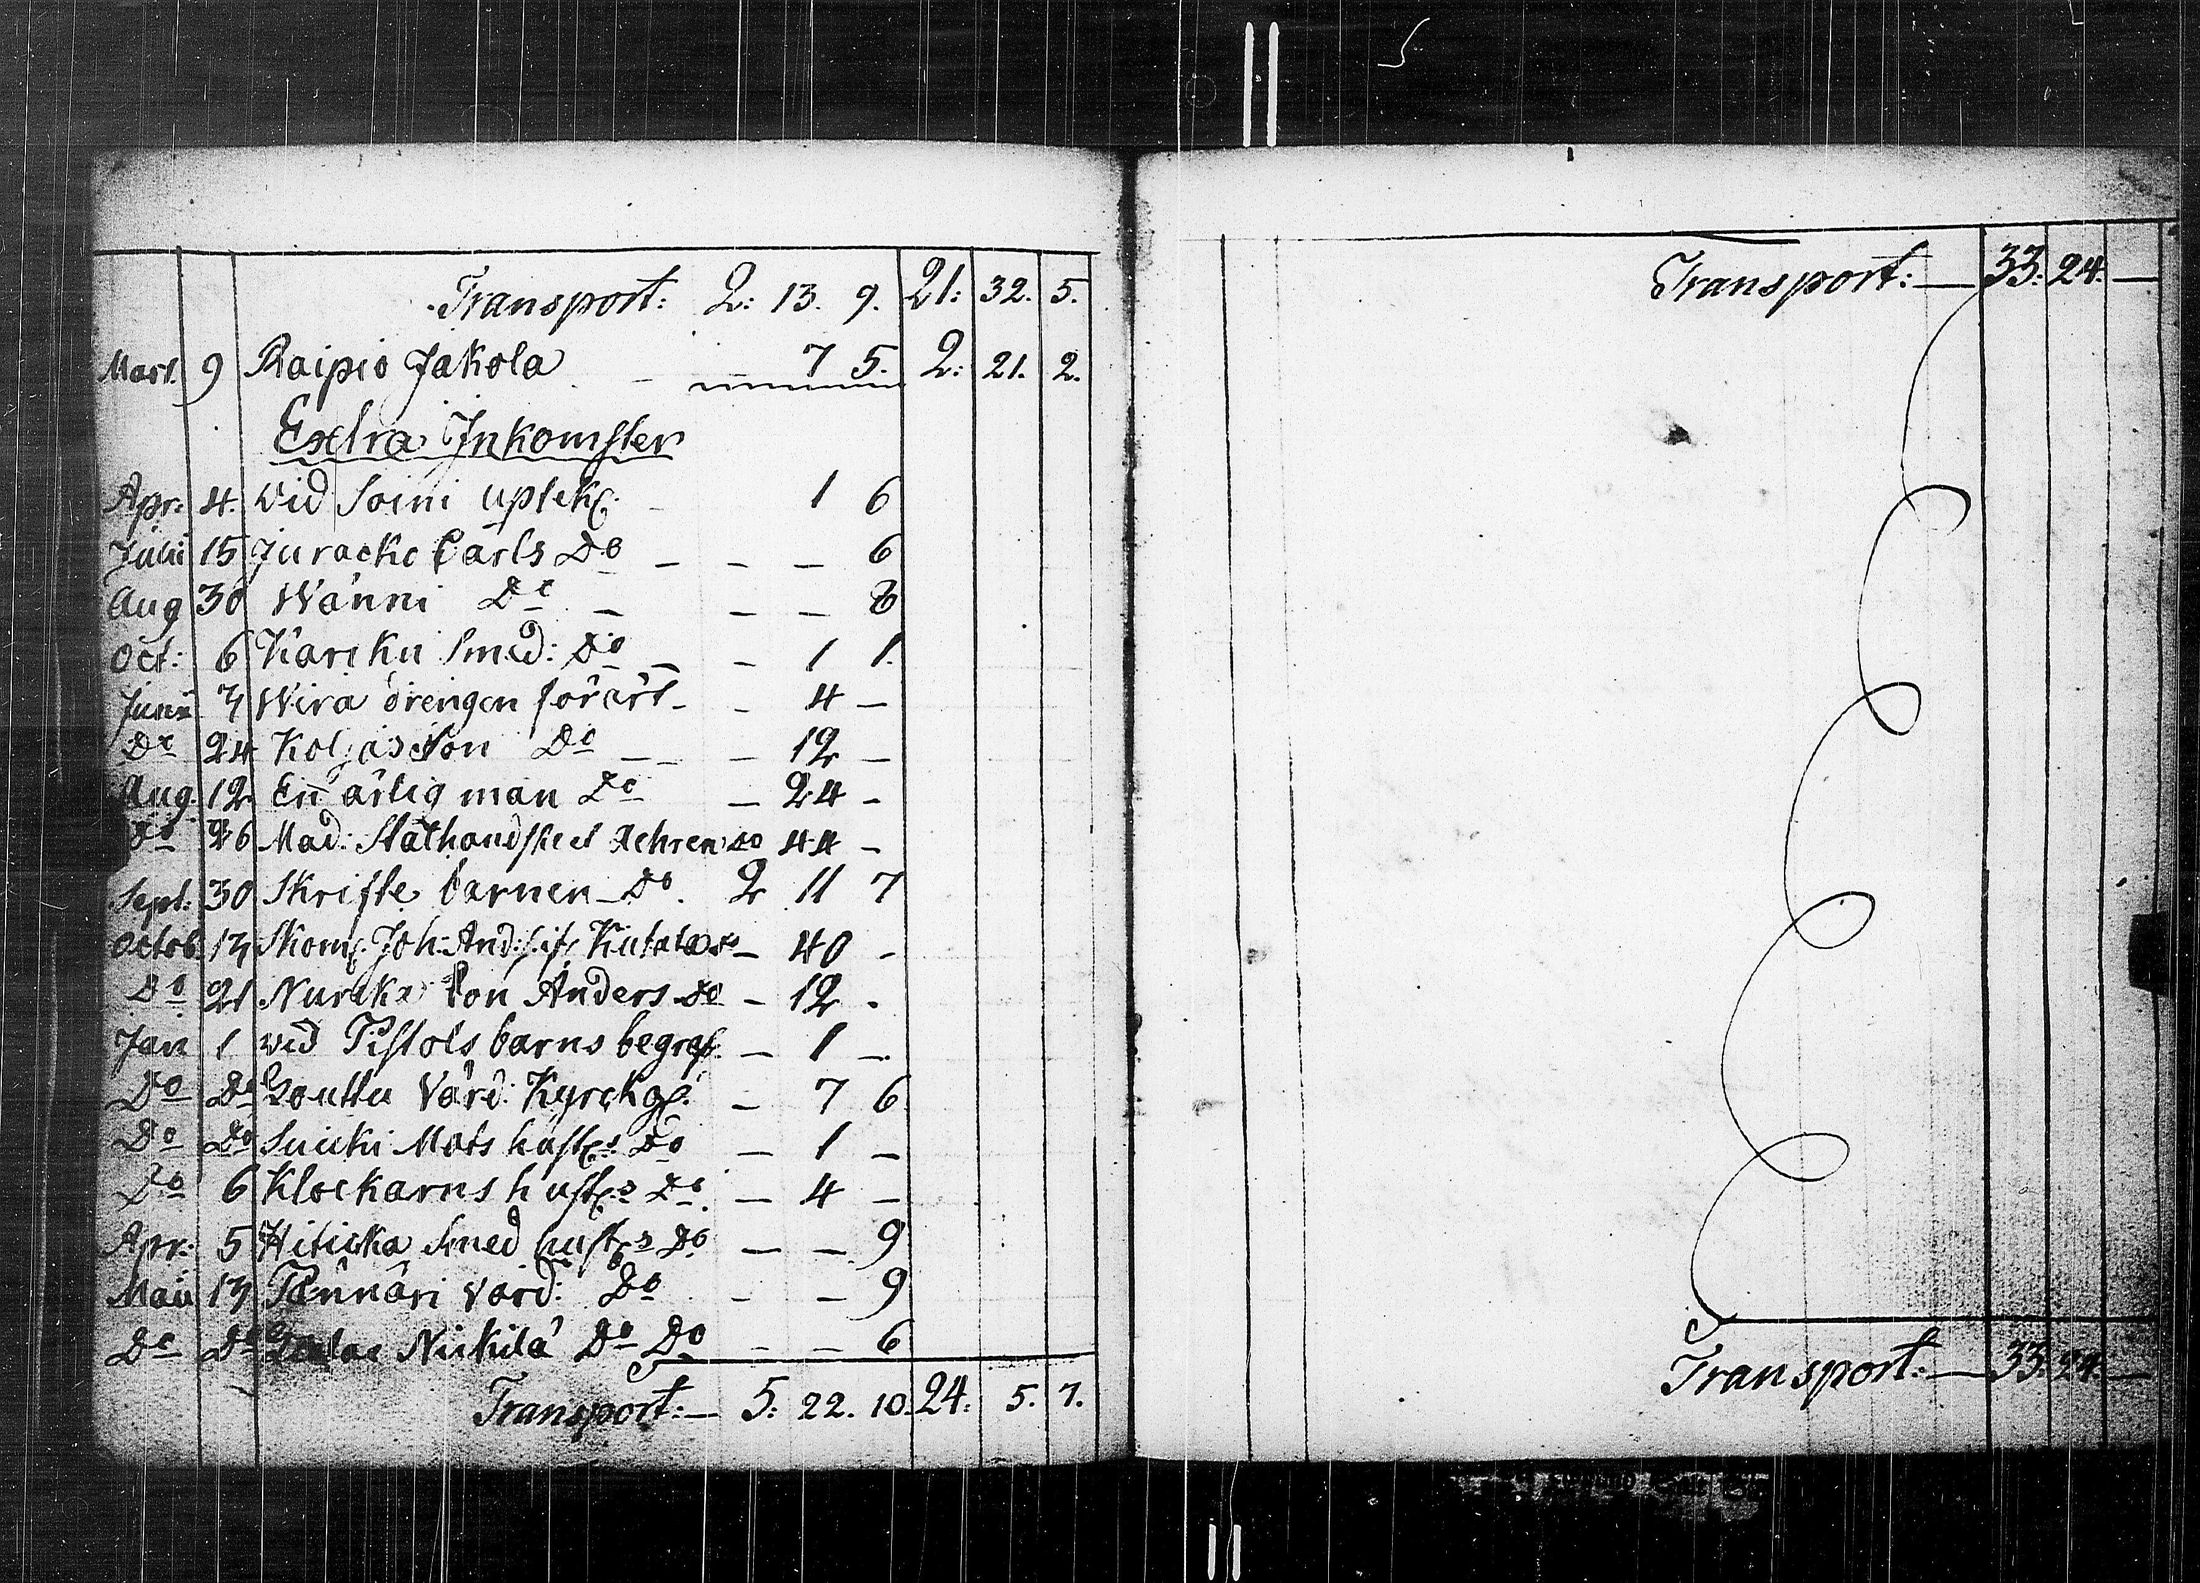 Transport: 2: 13. 9. 21: 32. 5.
Mart. 9 Raipio Jakola — 7 5. 2: 21. 2.
Extra Inkomster
Apr: 4. vid Soini uptekn: — 1 6
Julii 15 Juracko Carls Do — — — 6
Aug 30 Wänni Do — — — 8
Oct: 6 Karsku Smed: Do — — 1 1.
Junii 7 Wira drengen förärt — — 4 —
Do 24 Koljas Son Do — — — 12 —
Aug. 12 En ärlig man Do — 24 —
Do 26 Mad: Do 44 —
Sept. 30 Skrifte barnen Do. 2 11 7
Octob. 13 Joh: And: Do — 40 —
Do 21 Son Anders Do — 12 .
Jan 1 vid Pistols barns begrafn. — 1 —.
Do Do Gouttu Värd: Kyrckg. — 7 6
Do Do Mats hust:s Do — 1 —
Do 6 Klockarns hust:s Do. — 4 —
Apr: 5 Smed hust:s Do — — 9
Maii 13 Tännäri värd: Do — — 9
Do Do Niskila Do Do — — 6
Transport: — 5: 22. 10. 24: 5. 7.
Transport: — 33: 24. —
Transport: — 33: 24. —